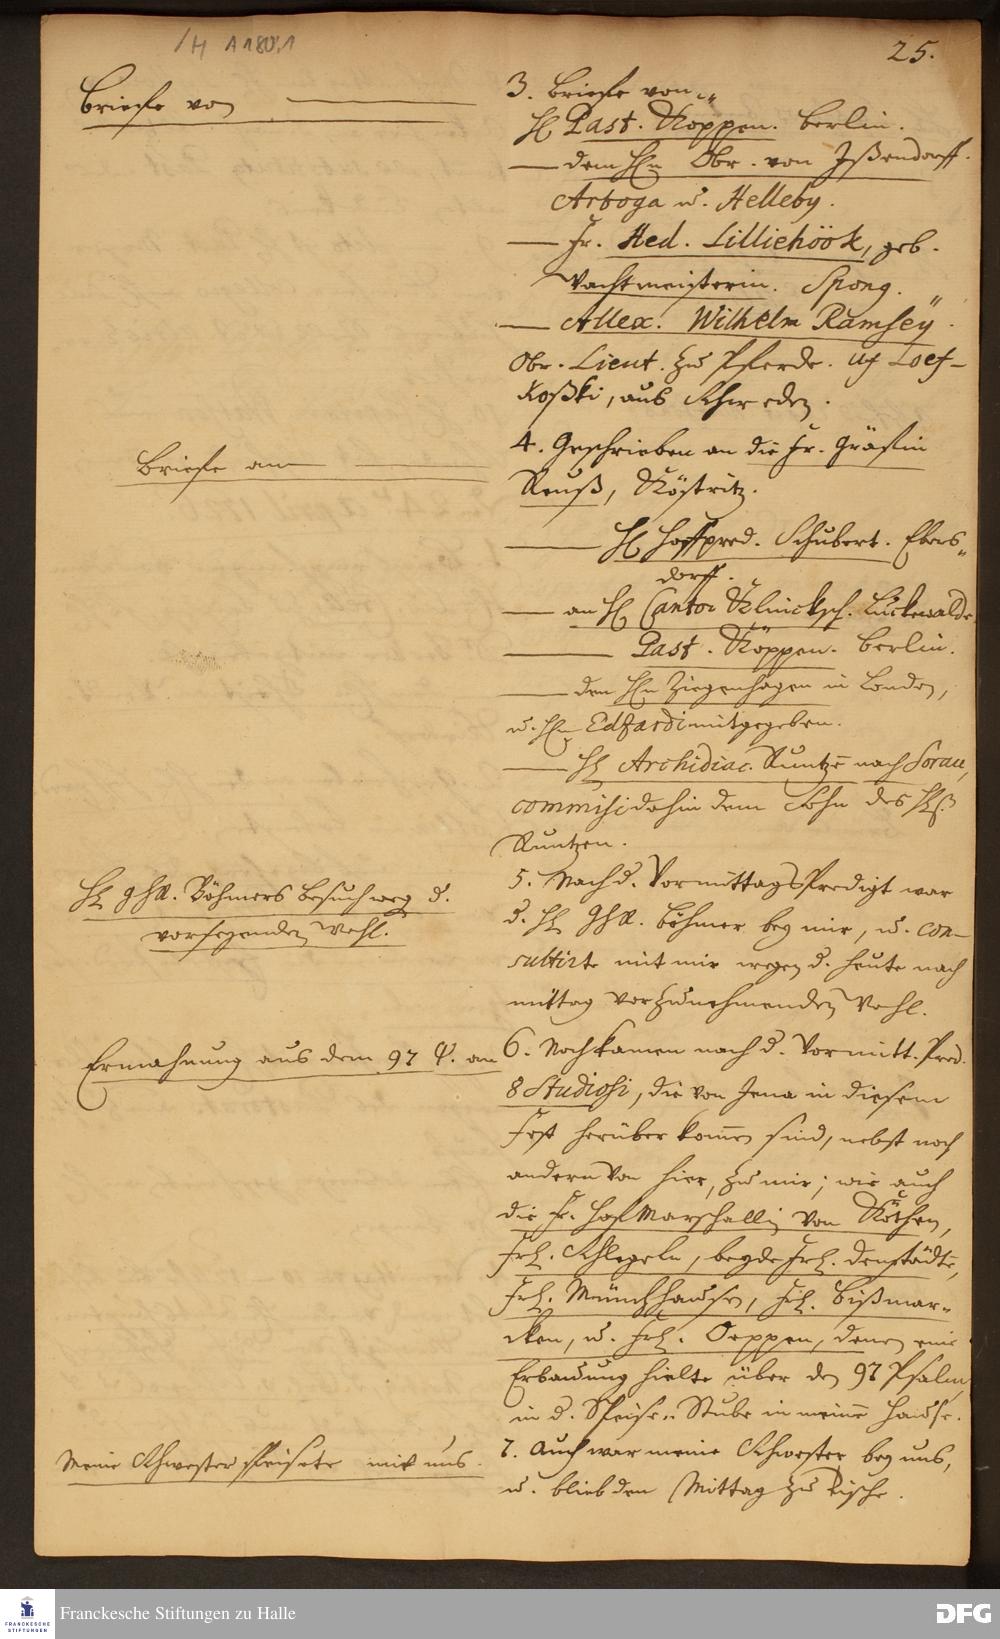 /H A 180:1
25.
Briefe von
3. Briefe von„
H Past. Koppen. Berlin.
— dem Hn Obr. von Ißendorff.
Arboga u. Helleby.
— Fr. Hed. Lilliehöök, geb.
Wachtmeisterin. Spong.
— Allex. Wilhelm Ramseÿ.
Obr. Lieut. zu Pferde. uf Loef-
koßki, aus Schweden.
Briefe an
4. Geschrieben an die Fr. Gräfin
Reuß, Köstritz.
— H Hoffpred. Schubert. Ebers„
dorff.
— an H Cantor Luckewalde
— Past. Köppen. Berlin.
— dem Hn Ziegenhagen in London,
u. Hn Edzardi mitgegeben.
— H Archidiac. Kuntze nach Sorau,
dahin dem Sohn des H
Kuntzen.
H ghR. Böhmers Besuch weg d.
vorsegenden Wahl.
5. Nach d. VormittagsPredigt war
d. H GhR. Böhmer bey mir, u. con-
sultirte mit mir wegen d. heute nach
mittag vorzunehmenden Wahl.
Ermahnung aus dem 97 Ps. an
6. Noch kamen nach d. Vormitt. Pred.
8 Studiosi, die von Jena in diesem
Fest herüber kommen sind, nebst noch
andern von hier, zu mir; wie auch
die Fr. HofMarschallin von Köthen,
Frl. Schlegeln, beyde Frl. Denstädte,
Frl. Münchhausen, Frl. Bißmar-
cken, u. Frl. Oeppen, denen eine
Erbauung hielte über den 97 Psalm,
in d. Speise-Stube in meinem Hause.
Meine Schwester speisete mit uns.
7. Auch war meine Schwester bey uns,
u. blieb den Mittag zu Tische.
FRANCKESCHE
STIFTUNGEN
Franckesche Stiftungen zu Halle
DFG